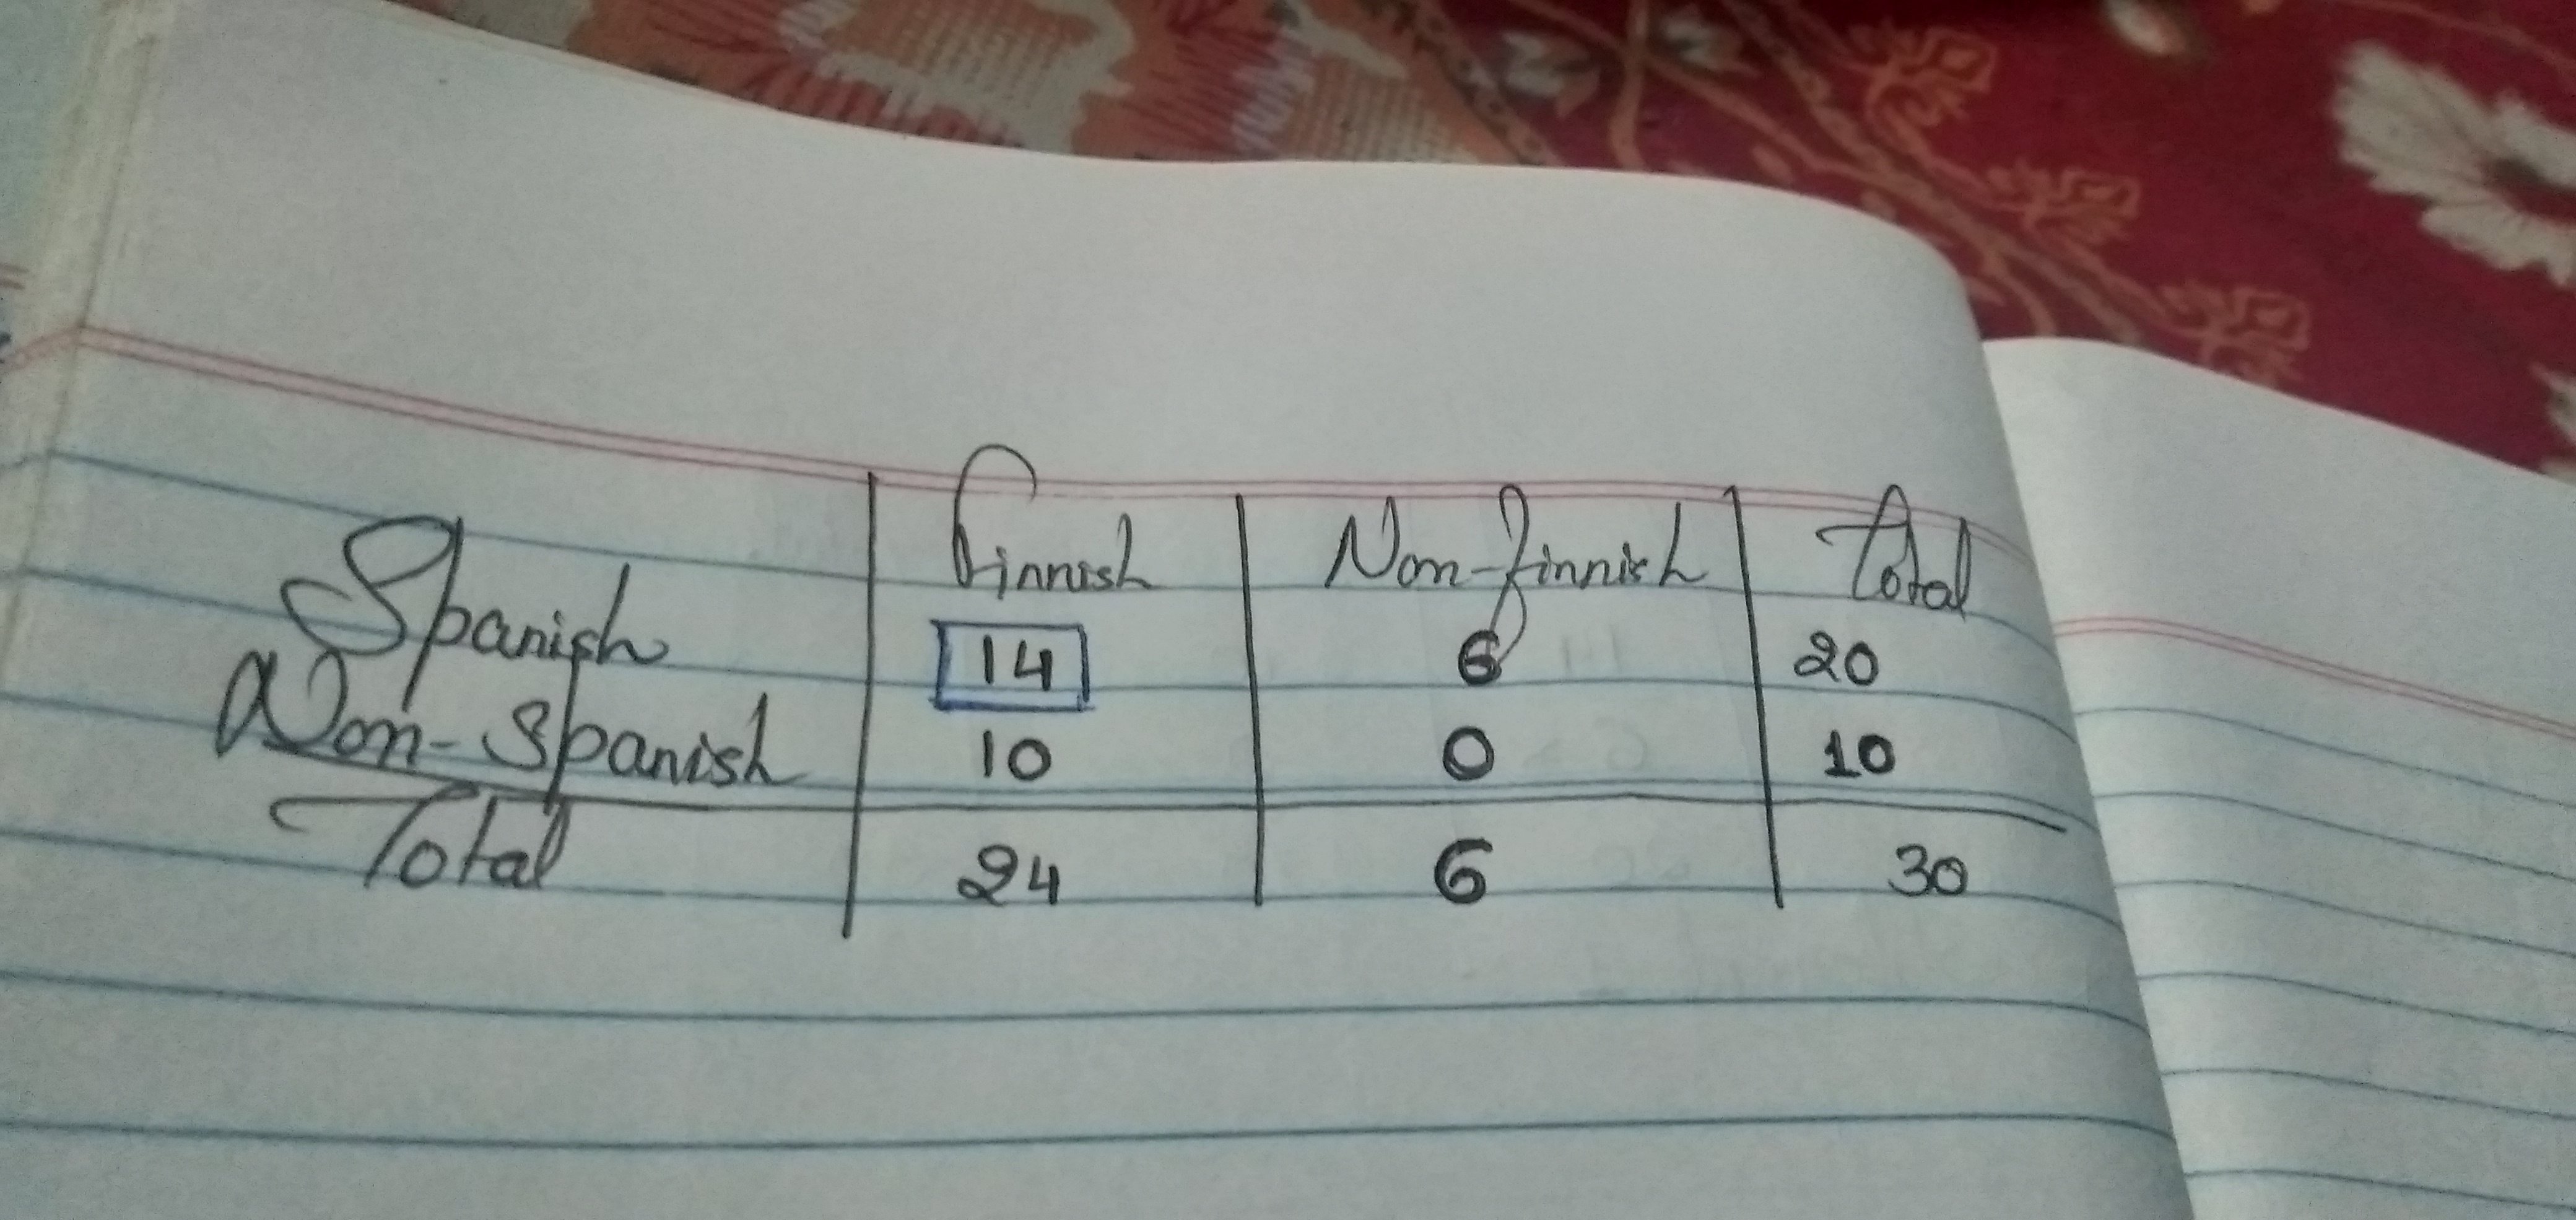 Finnish Non-finnish Total
Spanish 14 6 20
Non-Spanish 10 0 10
Total 24 6 30